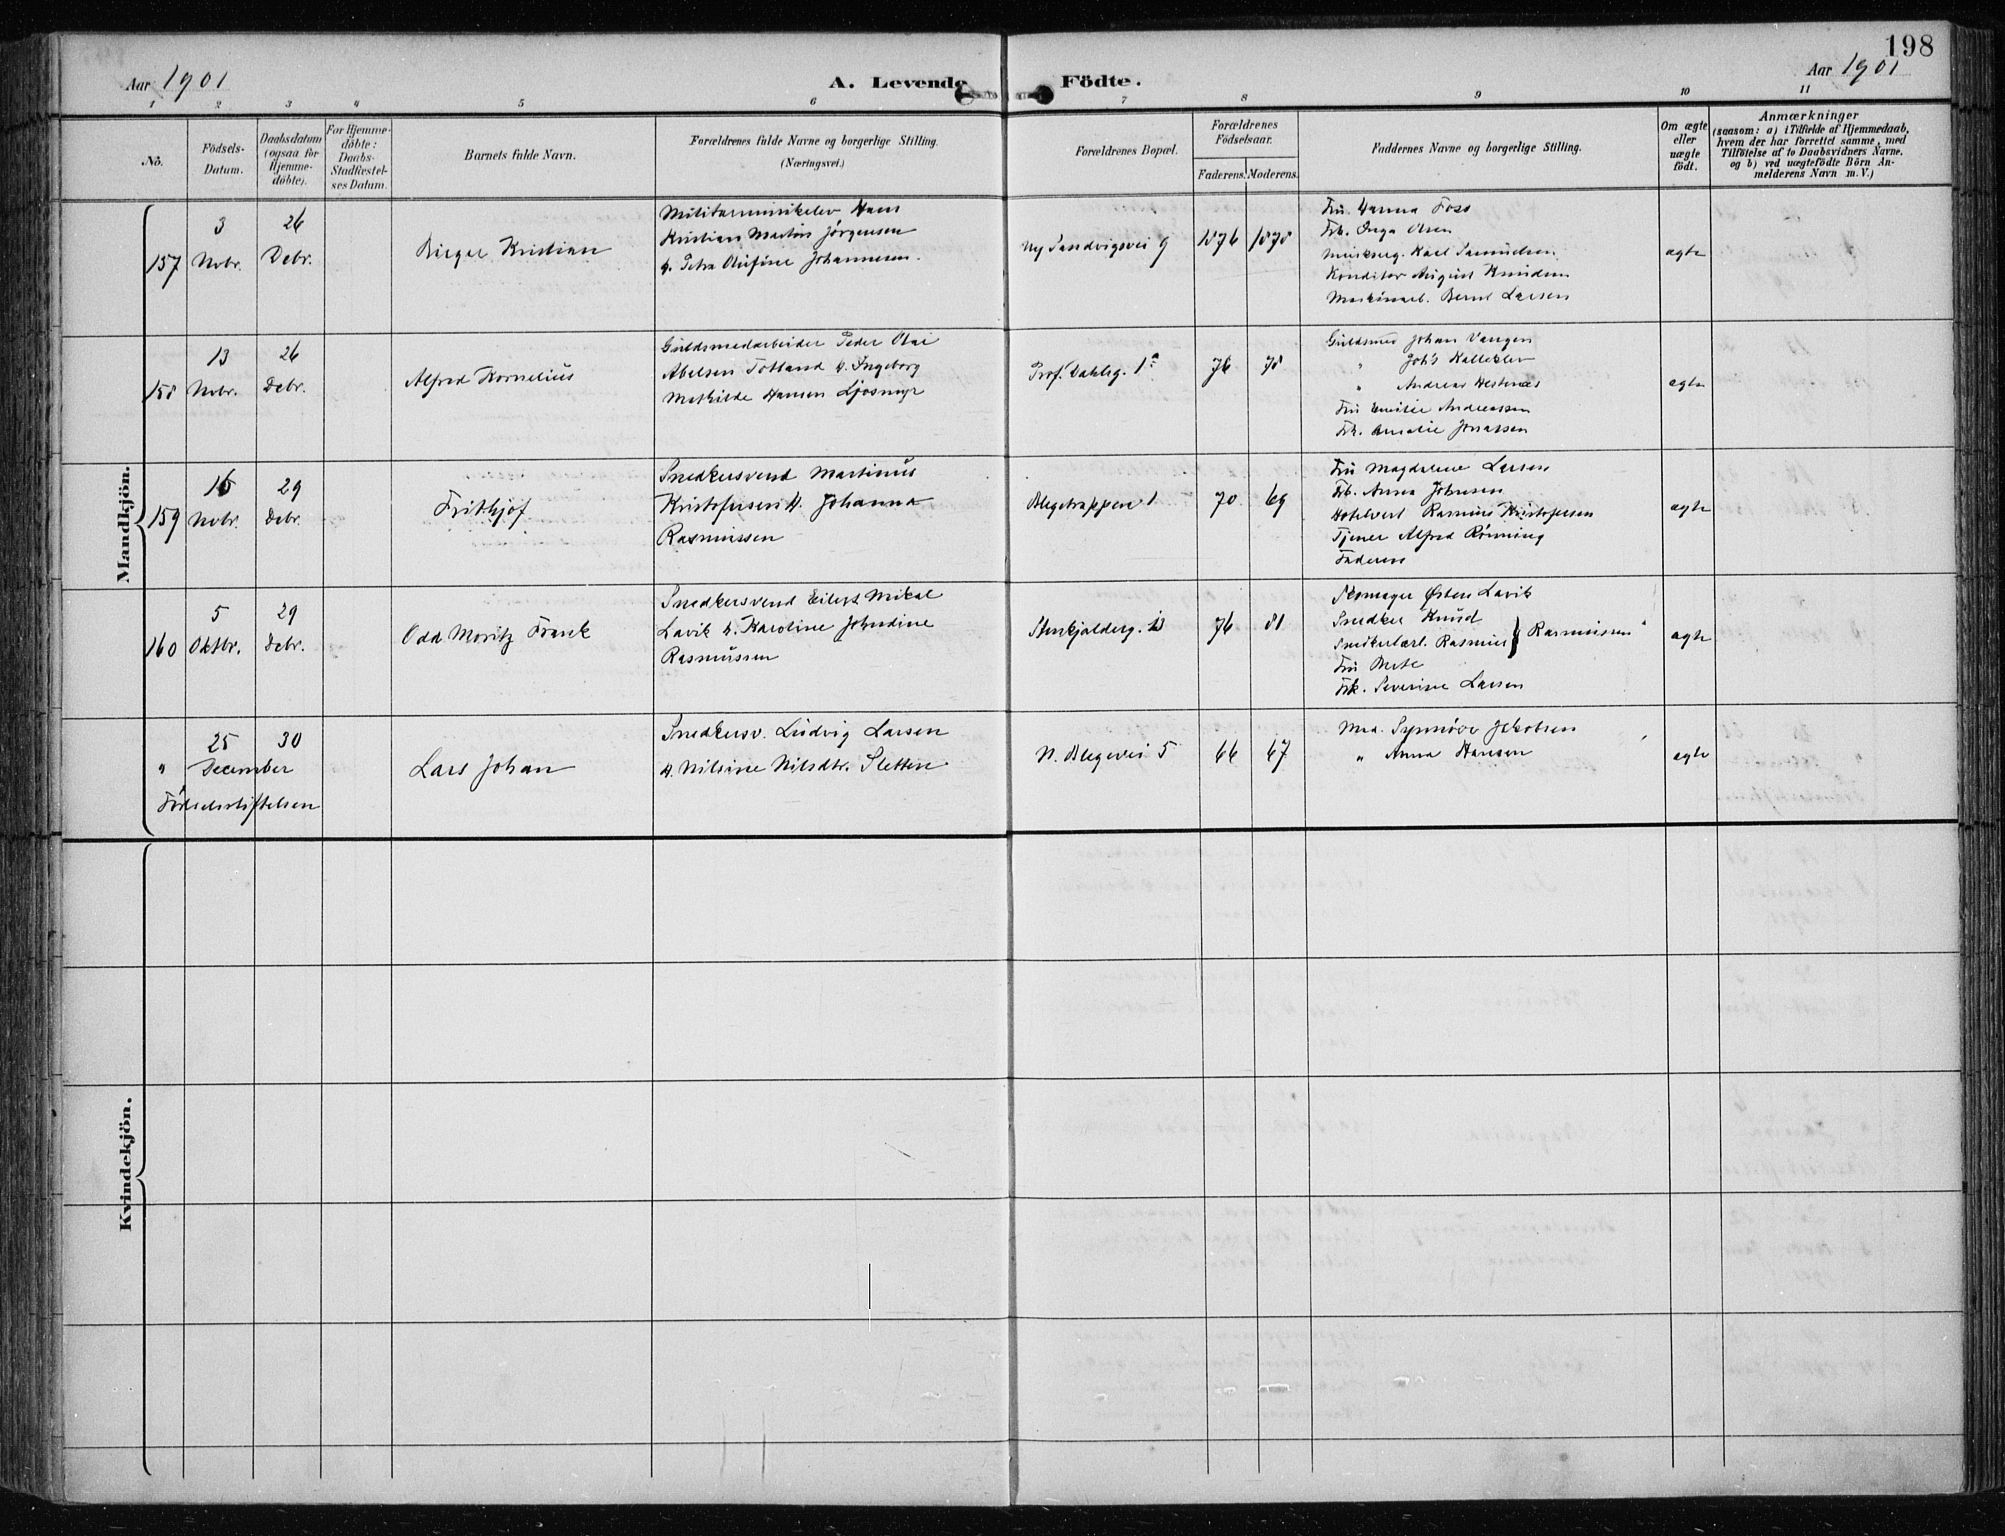 198
Aar 1901
A. Levende Födte.
Aar 1901
1 2 3 4 5 6 7 8 9 10 11
No.
Födsels-
Datum.
Daabsdatum
(ogsaa for
Hjemme-
döbte).
For Hjemme-
döbte:
Daabs-
Stadfæstel-
ses Datum.
Barnets fulde Navn.
Forældrenes fulde Navne og borgerlige Stilling.
(Næringsvei.)
Forældrenes Bopæl.
Forældrenes
Födselsaar.
Faderens. Moderens.
Faddernes Navne og borgerlige Stilling.
Om ægte
eller
uægte
födt.
Anmærkninger
(saasom: a) i Tilfælde af Hjemmedaab,
hvem der har forrettet samme, med
Tilföielse af to Daabsvidners Navne.
og b) ved uægtefödte Börn An-
melderens Navn m. V.)
Mandkjön.
157
3
Novbr.
26
Debr.
Birger Kristian
Hans
Kristian Martin Jørgensen
Petra Olufine Johannesen.
Ny Sandvigsvei 9
1876 1878
Fru Hanna Foss
Frk. Inga Olsen
Karl Samuelsen
Konditor August Knudsen
Maskinarb. Bernt Larsen
ægte
158
13
Novbr.
26
Debr.
Alfred Kornelius
Guldsmedarbeider Peder Olai
Abelsen Totland & Ingeborg
Mathilde Hansen Ljosmyr
Prof. Dahlsg. 1a
76 78
Guldsmed Johan Vangen
" Johs Kalleklev
" Andreas Hestenes
Fru Emilie Andreassen
Frk. Amalie Jonassen
ægte
159
15
Novbr.
29
Debr.
Frithjof
Snedkersvend Martinus
Kristofersen & Johanna
Rasmussen
Blegetrappen 1
70 69
Fru Magdalene Larsen
Frk. Anna Johnsen
Hotelvert Rasmus Kristofersen
Tjener Alfred Rønning
Faderen
ægte
160
5
Oktbr.
29
Debr.
Odd Moritz Frank
Snedkersvend Eilert Mikal
Lavik & Karoline Johndine
Rasmussen
Stenkjelderg. 13
76 81
Skomager Østen Lavik
Snedker Knud
Snedkerlærl. Rasmus } Rasmussen
Fru Mete
Frk. Severine Larsen
ægte
"
25
December
30
Fødselsstiftelsen
Lars Johan
Snedkersv. Ludvig Larsen
& Nilsine Nilsdtr. Sletten
N. Blegevei 5
66 67
Mad. Synnøve Jakobsen
" Anna Hansen
ægte
Kvindekjön.